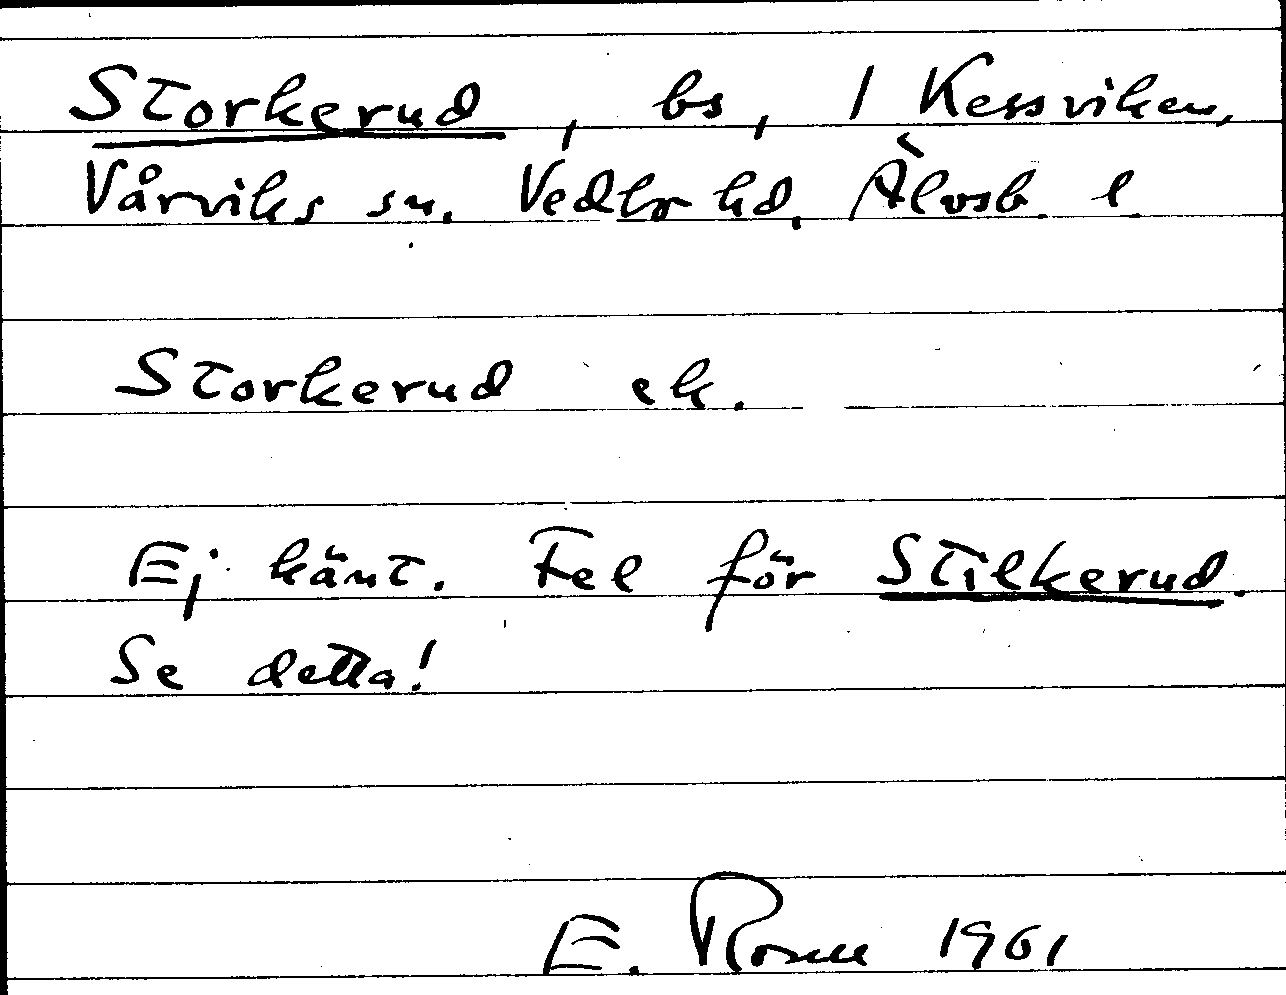 Storkerud, bs, 1 Kessviken,
Vårviks sn. Vedbo hd. Älvsb. l.
Storkerud ek.
Ej känt. Fel för Stilkerud.
Se detta!
E. Rosell 1961